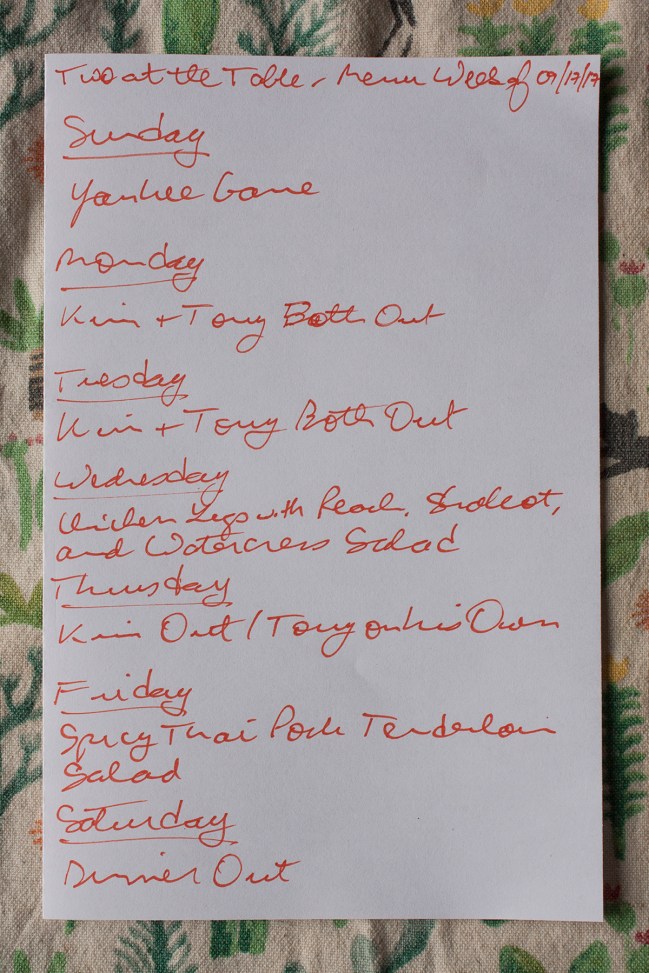 Two at the Table - Menu Week of 09/17/17
Sunday
Yankee Game
Monday
Kim + Tony Both Out
Tuesday
Kim + Tony Both Out
Wednesday
Chicken Legs with Peach, Shallot,
and Watercress Salad
Thursday
Kim Out / Tony on his Own
Friday
Spicy Thai Pork Tenderloin
Salad
Saturday
Dinner Out